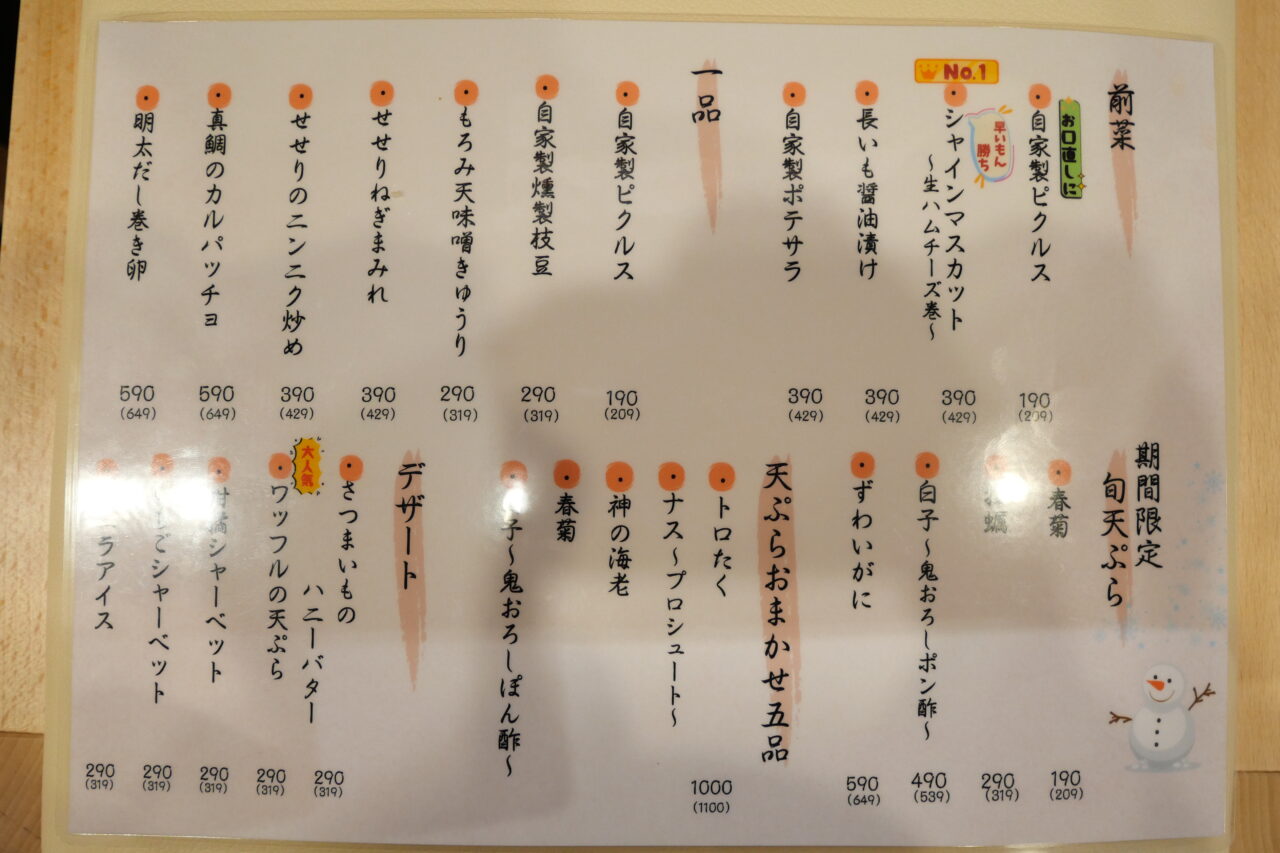 前菜
お口直しに
自家製ピクルス
190
(209)
No.1
早いもん勝ち
シャインマスカット
~生ハムチーズ巻~
390
(429)
長いも醤油漬け
390
(429)
自家製ポテサラ
390
(429)
一品
自家製ピクルス
190
(209)
自家製燻製枝豆
290
(319)
もろみ天味噌きゅうり
290
(319)
せせりねぎまみれ
390
(429)
せせりのニンニク炒め
390
(429)
真鯛のカルパッチョ
590
(649)
明太だし巻き卵
590
(649)
期間限定
旬天ぷら
春菊
190
(209)
牡蠣
290
(319)
白子~鬼おろしポン酢~
490
(539)
ずわいがに
590
(649)
天ぷらおまかせ五品
1000
(1100)
トロたく
ナス~プロシュート~
神の海老
春菊
子~鬼おろしぽん酢~
デザート
さつまいもの
ハニーバター
290
(319)
大人気
ワッフルの天ぷら
290
(319)
柑橘シャーベット
290
(319)
ごシャーベット
290
(319)
ラアイス
290
(319)